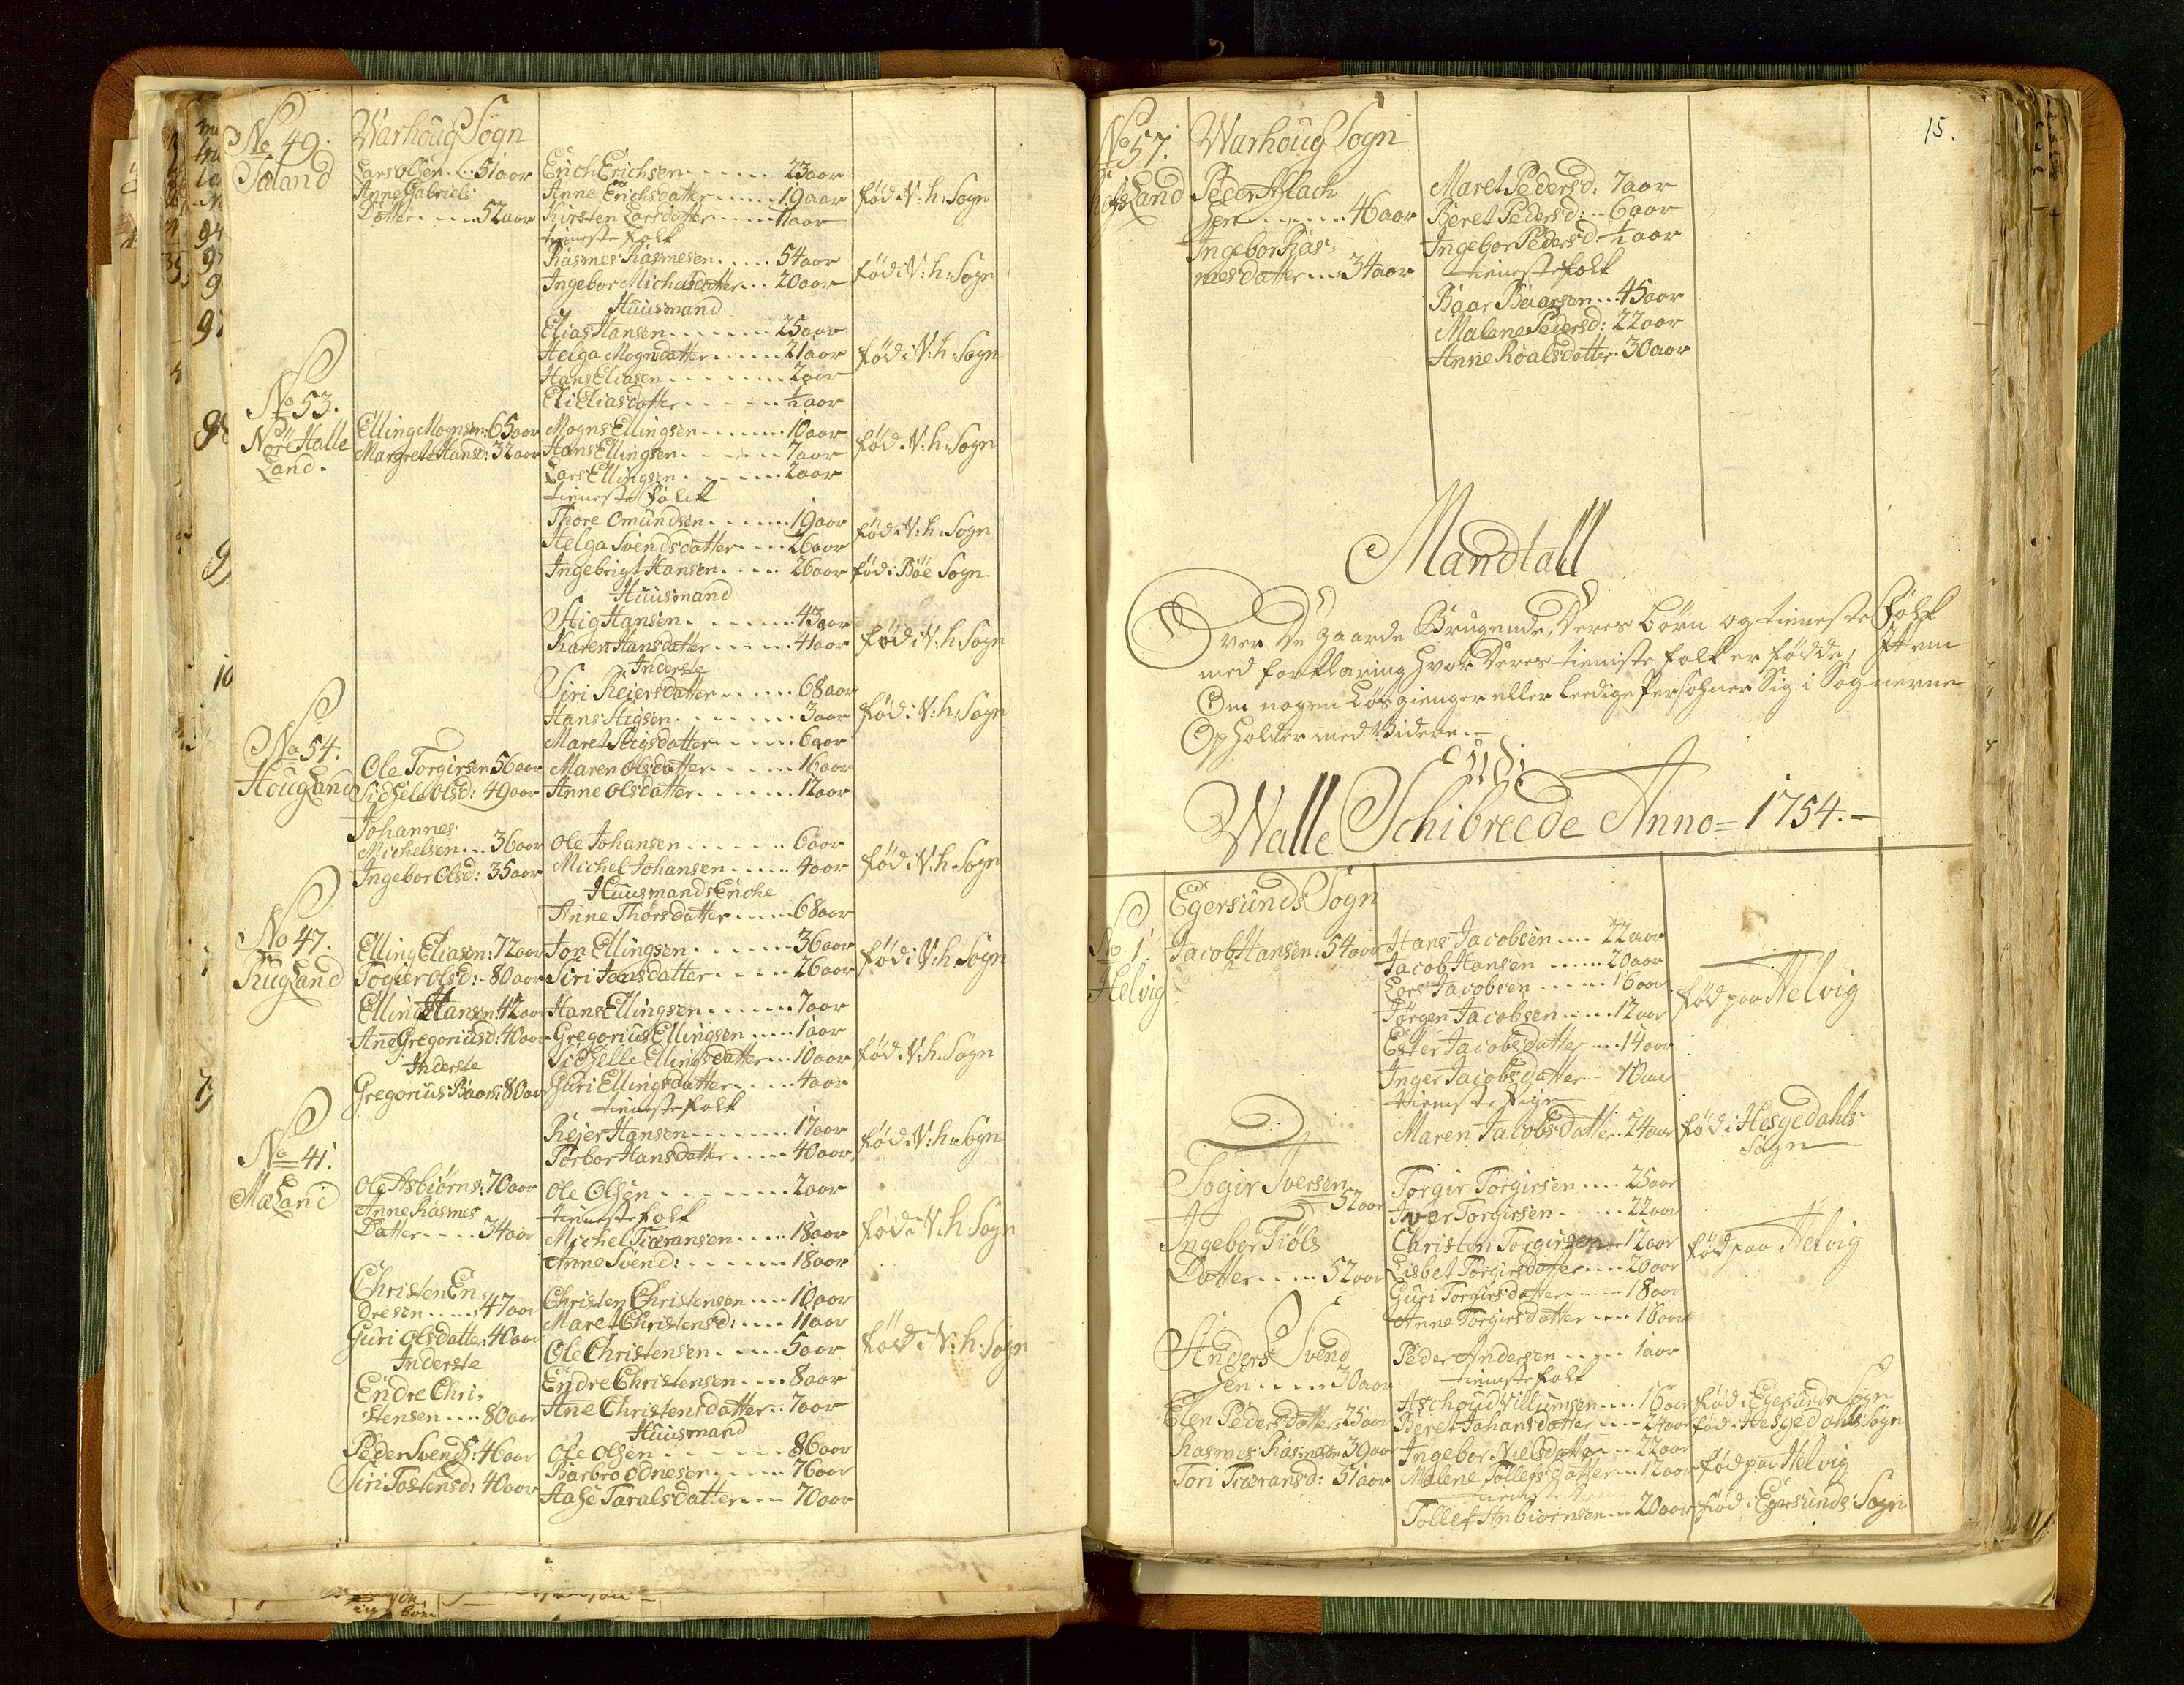 No 49.
Warhoug Sogn
Saland
Lars Olsen .... 51 aar
Anne Gabriels
Datter .... 52 aar
Erich Erichsen ...... 23 aar
Anne Erichsdatter ..... 19 aar
Kirsten Larsdatter ..... 11 aar
fød i V: h: Sogn
tieneste Folk
Rasmes Rasmesen .... 54 aar
Ingebor Michelsdatter ... 20 aar
fød i V: h: Sogn
Huusmand
Elias Hansen ....... 25 aar
Helga Mognsdatter ..... 21 aar
fød i V: h: Sogn
Hans Eliasen ....... 2 aar
Eli Eliasdatter ...... ½ aar
No 53.
Nore Halle
Land.
Elling Mognsen: 65 aar
Margrete Hansd: 32 aar
Mogns Ellingsen ...... 10 aar
Hans Ellingsen ...... 7 aar
Lars Ellingsen ...... 2 aar
fød i V: h: Sogn
tieneste Folk
Thore Omundsen ...... 19 aar
Helga Svendsdatter .... 26 aar
fød i V: h: Sogn
Ingebrigt Hansen .... 26 aar
fød i Böe Sogn
Huusmand
Stig Hansen ....... 43 aar
Karen Hansdatter ..... 41 aar
fød i V: h: Sogn
Inderste
Siri Reiersdatter ..... 68 aar
Hans Stigsen ....... 3 aar
fød i V: h: Sogn
Maret Stigsdatter ..... 6 aar
No 54.
Hougland
Ole Torgirsen 56 aar
Sidsele Olsd: 49 aar
Maren Olsdatter ..... 16 aar
Anne Olsdatter ...... 12 aar
Johannes
Michelsen ... 36 aar
Ingebor Olsd: 35 aar
Ole Johansen ....... 6 aar
Michel Johansen ..... 4 aar
fød i V: h: Sogn
Huusmands Enche
Anne Thorsdatter .... 68 aar
No 47.
Rugland
Elling Eliasen: 72 aar
Togier Olsd: 80 aar
Jon Ellingsen ...... 36 aar
Siri Jonsdatter ..... 26 aar
fød i V: h: Sogn
Elling Hansen: 42 aar
Ane Gregoriusd: 40 aar
Hans Ellingsen ...... 7 aar
Gregorius Ellingsen .... 1 aar
Sidselle Ellingsdatter ... 10 aar
fød i V: h: Sogn
Inderste
Gregorius Baars: 80 aar
Guri Ellingsdatter .... 4 aar
tieneste folk
Reier Hansen ....... 17 aar
Torbor Hansdatter .... 40 aar
fød i V: h: Sogn
No 41.
Mæland
Ole Asbiörns: 70 aar
Anne Rasmes
Datter .... 34 aar
Ole Olsen ....... 2 aar
tieneste folk
Michel Tiæransen .... 18 aar
Anne Svend: ...... 18 aar
fød i V: h: Sogn
Christen En-
dresen ..... 47 aar
Guri Olsdatter: 40 aar
Christen Christensen ... 10 aar
Maret Christensd: .... 11 aar
Ole Christensen ..... 5 aar
fød i V: h: Sogn
Inderste
Endre Chri-
stensen .... 80 aar
Endre Christensen .... 8 aar
Ane Christensdatter .. 7 aar
Huusmand
Peder Svends: 46 aar
Siri Tostensd: 40 aar
Ole Olsen ...... 86 aar
Barbro Odnesen ..... 76 aar
Aase Taralsdatter .... 70 aar
15.
No 57.
Warhoug Sogn
Land
Peder Aslach
sen ..... 46 aar
Ingebor Ras-
mesdatter ... 34 aar
Maret Pedersd: 7 aar
Beret Pedersd: .. 6 aar
Ingebor Pedersd ½ aar
tieneste folk
Baar Baarsen ... 45 aar
Malene Pedersd: 22 aar
Anne Roalsdatter . 30 aar
Mandtall
Over De gaarde Brugende, Deres börn og tieneste Folk
med forklaring hvor Deres tieniste folk er födde, Item
Om nogen Lösgienger eller leedige Persohner Sig i Sognerne
Opholder med Videre. -
Udi
Walle Schibreede Anno = 1754. -
Egersunds Sogn
No 1.
Helvig
Jacob Hansen: 54 aar
Hans Jacobsen .... 22 aar
Jacob Hansen ..... 20 aar
Lars Jacobsen ..... 16 aar
Jörgen Jacobsen .... 12 aar
Ester Jacobsdatter ... 14 aar
Inger Jacobsdatter ... 10 aar
fød paa Helvig
tieneste Pige
Maren Jacobsdatter .. 24 aar
fød i Hesgedahls
Sogn
Togir Iversen
52 aar
Ingebor Tiöls
Datter .... 52 aar
Torgir Torgirsen .... 25 aar
Iver Torgirsen ..... 22 aar
Christen Torgirsen ... 12 aar
Lisbet Torgirsdatter .... 20 aar
Guri Torgirsdatter .... 18 aar
Anne Torgirsdatter ... 16 aar
fød paa Helvig
Anders Svend
sen .... 30 aar
Elen Pedersdatter 25 aar
Peder Andersen ..... 1 aar
tieneste folk
Aschoud Villumsen .... 16 aar
fød i Egersunds Sogn
Beret Johansdatter ... 24 aar
fød i Hesgedahls Sogn
Rasmes Rasmesen 39 aar
Tori Tiæransd: 51 aar
Ingebor Nielsdatter ... 22 aar
Malene Tollefsdatter ... 12 aar
fød paa Helvig
Tollef Anbiörnsen ... 20 aar
fød i Egersunds Sogn